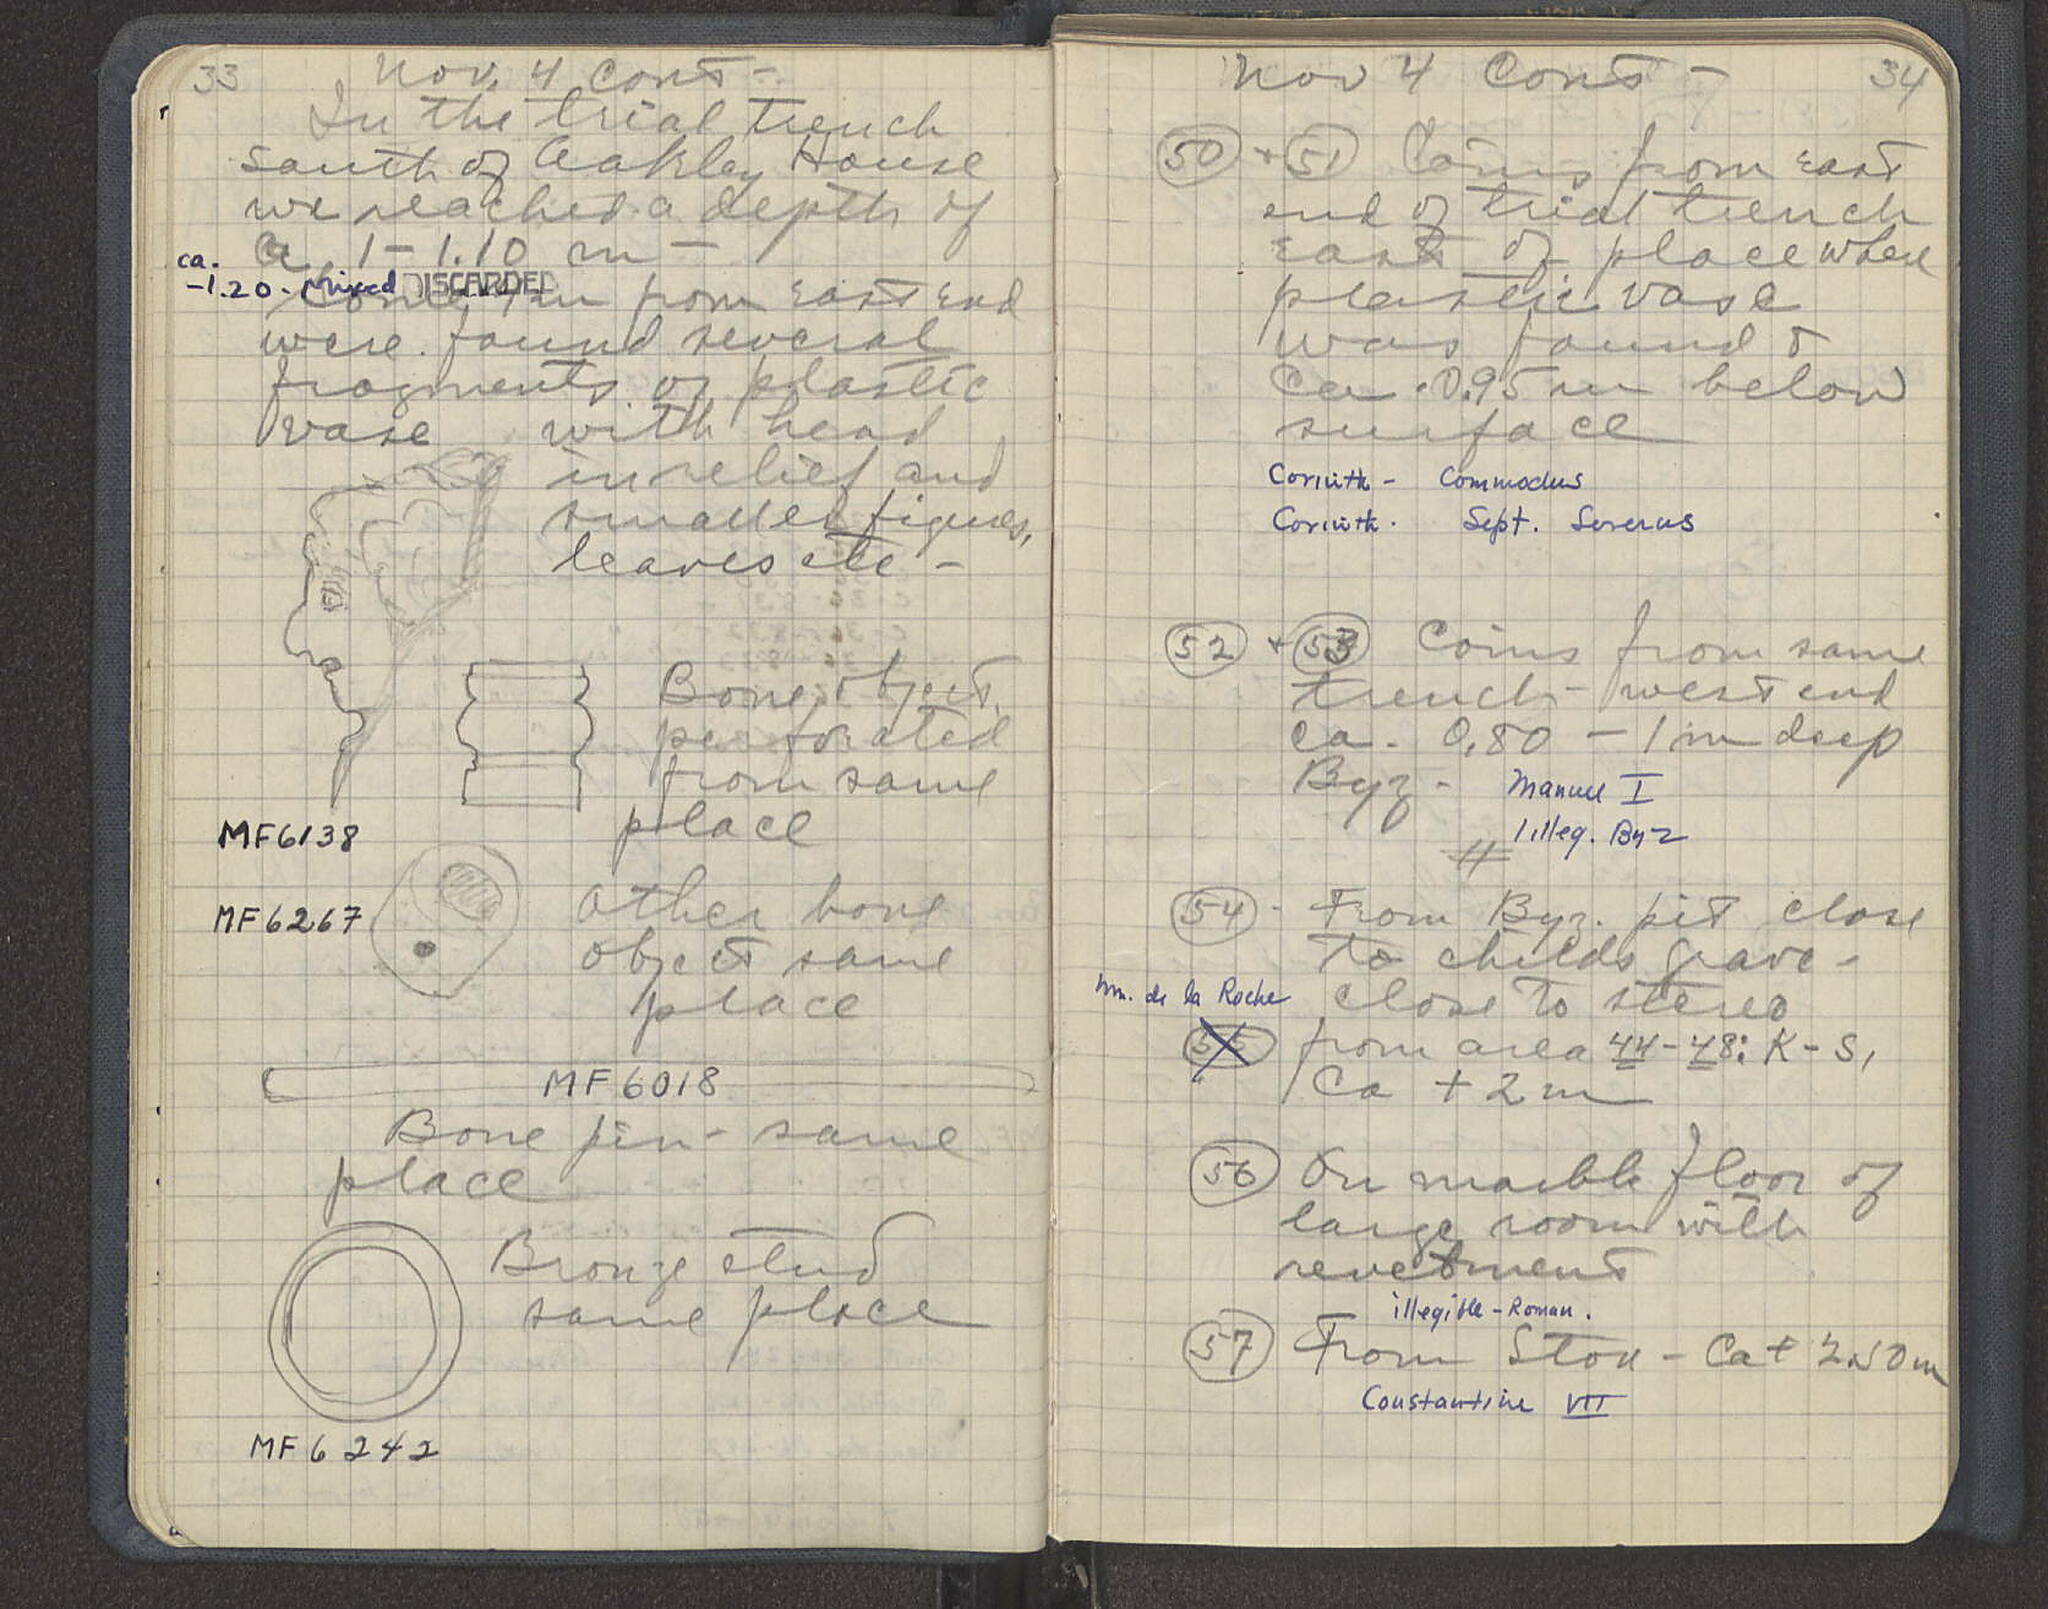 33 Nov. 4 Cont-
In the trial trench
south of Oakley House
we reached a depth of
ca. 1-1.10 m -
ca.
-1.20 - Mixed DISCARDED
from east end
were found several
fragments of plastic
vase with head
in relief and
smaller figures,
leaves etc -
Bone object
perforated
from same
place
MF6138
MF6267
Other bone
object same
place
MF6018
Bone pin - same
place
Bronze stud
same place
MF6242
Nov 4 Cont - 34
50 + 51 Coins from east
end of trial trench
east of place where
plastic vase
was found &
ca. 0.95 m below
surface
Corinth - Commodus
Corinth. Sept. Severus
52 + 53 Coins from same
trench - west end
ca. 0,80 - 1 m deep
Byz - Manuel I
1 illeg. Byz
54 - From Byz. pit close
to childs grave -
close to stereo
de la Roche
55 from area 44-48: K-S,
Ca + 2 m
56 On marble floor of
large room with
revetment
illegible - Roman.
57 From Stoa - Ca + 2.50 m
Constantine VII